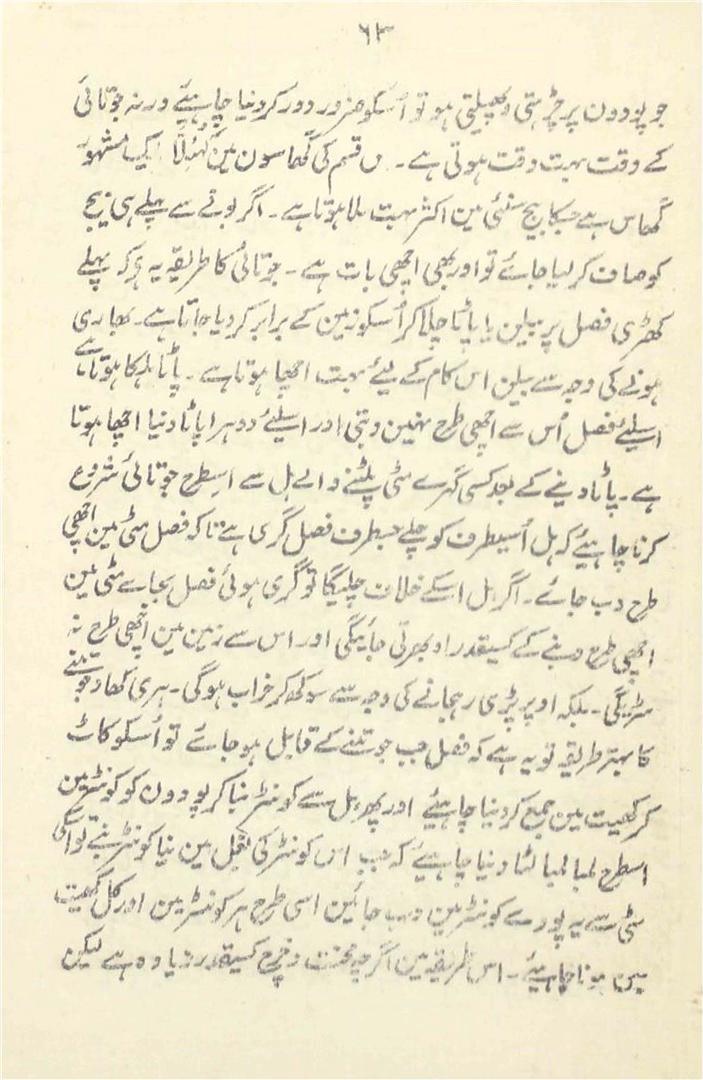 ۶۳
جو پودون پر چڑھتی و پھیلتی ہو تو اُسکو ضرور دور کر دینا چاہیئے ورنہ جوتائی
کے وقت بہت وقت ہوتی ہے۔ س قسم کی گھاسون مین ایک مشہور
گھاس ہے جسکا بیج سنئی مین اکثر بہت ملا ہوتا ہے۔ اگر بونے سے پہلے ہی بیج
کو صاف کر لیا جائے تو اور بھی اچھی بات ہے۔ جوتائی کا طریقہ یہ ہی کہ پہلے
کھڑی فصل پر بیلن یا پاٹا چلا کر اُسکو زمین کے برابر کر دیا جاتا ہے۔ بھاری
ہونے کی وجہ سے بیلن اس کام کے لیئے بہت اچھا ہوتا ہے۔ پاٹا ہلکا ہوتا ہے
اسلیئے فصل اُس سے اچھی طرح نہین دبتی اور اسلیئے دوہرا پاٹا دنیا اچھا ہوتا
ہے۔ پاٹا دینے کے بعد کسی گہرے مٹی پلٹنے والے ہل سے اسطرح جوتائی شروع
کرنا چاہیئے کہ ہل اُسیطرف کو چلے جسطرف فصل گری ہے تاکہ فصل مٹی مین اچھی
طرح دب جائے۔ اگر ہل اسکے خلاف چلیگا تو گری ہوئی فصل بجاے مٹی مین
اچھی طرح دبنے کے کسیقدر اوبھرتی جائیگی اور اس سے زمین مین اچھی طرح نہ
سڑیگی۔ بلکہ اوپر پڑی رہجانے کی وجہ سے سوکھ کر خراب ہوگی۔ ہری کھاد جوتنے
کا بہتر طریقہ تو یہ ہے کہ فصل جب جوتنے کے قابل ہو جائے تو اُسکو کاٹ
کر کھیت مین جمع کر دینا چاہیئے اور پھر ہل سے کونٹر بنا کر پودون کو کونٹر مین
اسطرح لمبا لمبا لٹا دینا چاہیئے کہ جب اس کونٹر کی بغل مین نیا کونٹر بنے تو اُسکی
مٹی سے یہ پورے کونٹر مین دب جائین اسی طرح ہر کونٹر مین اور کل کھیت
مین ہونا چاہیئے۔ اس طریقہ مین اگرچہ محنت و خرچ کسیقدر زیادہ ہے لیکن